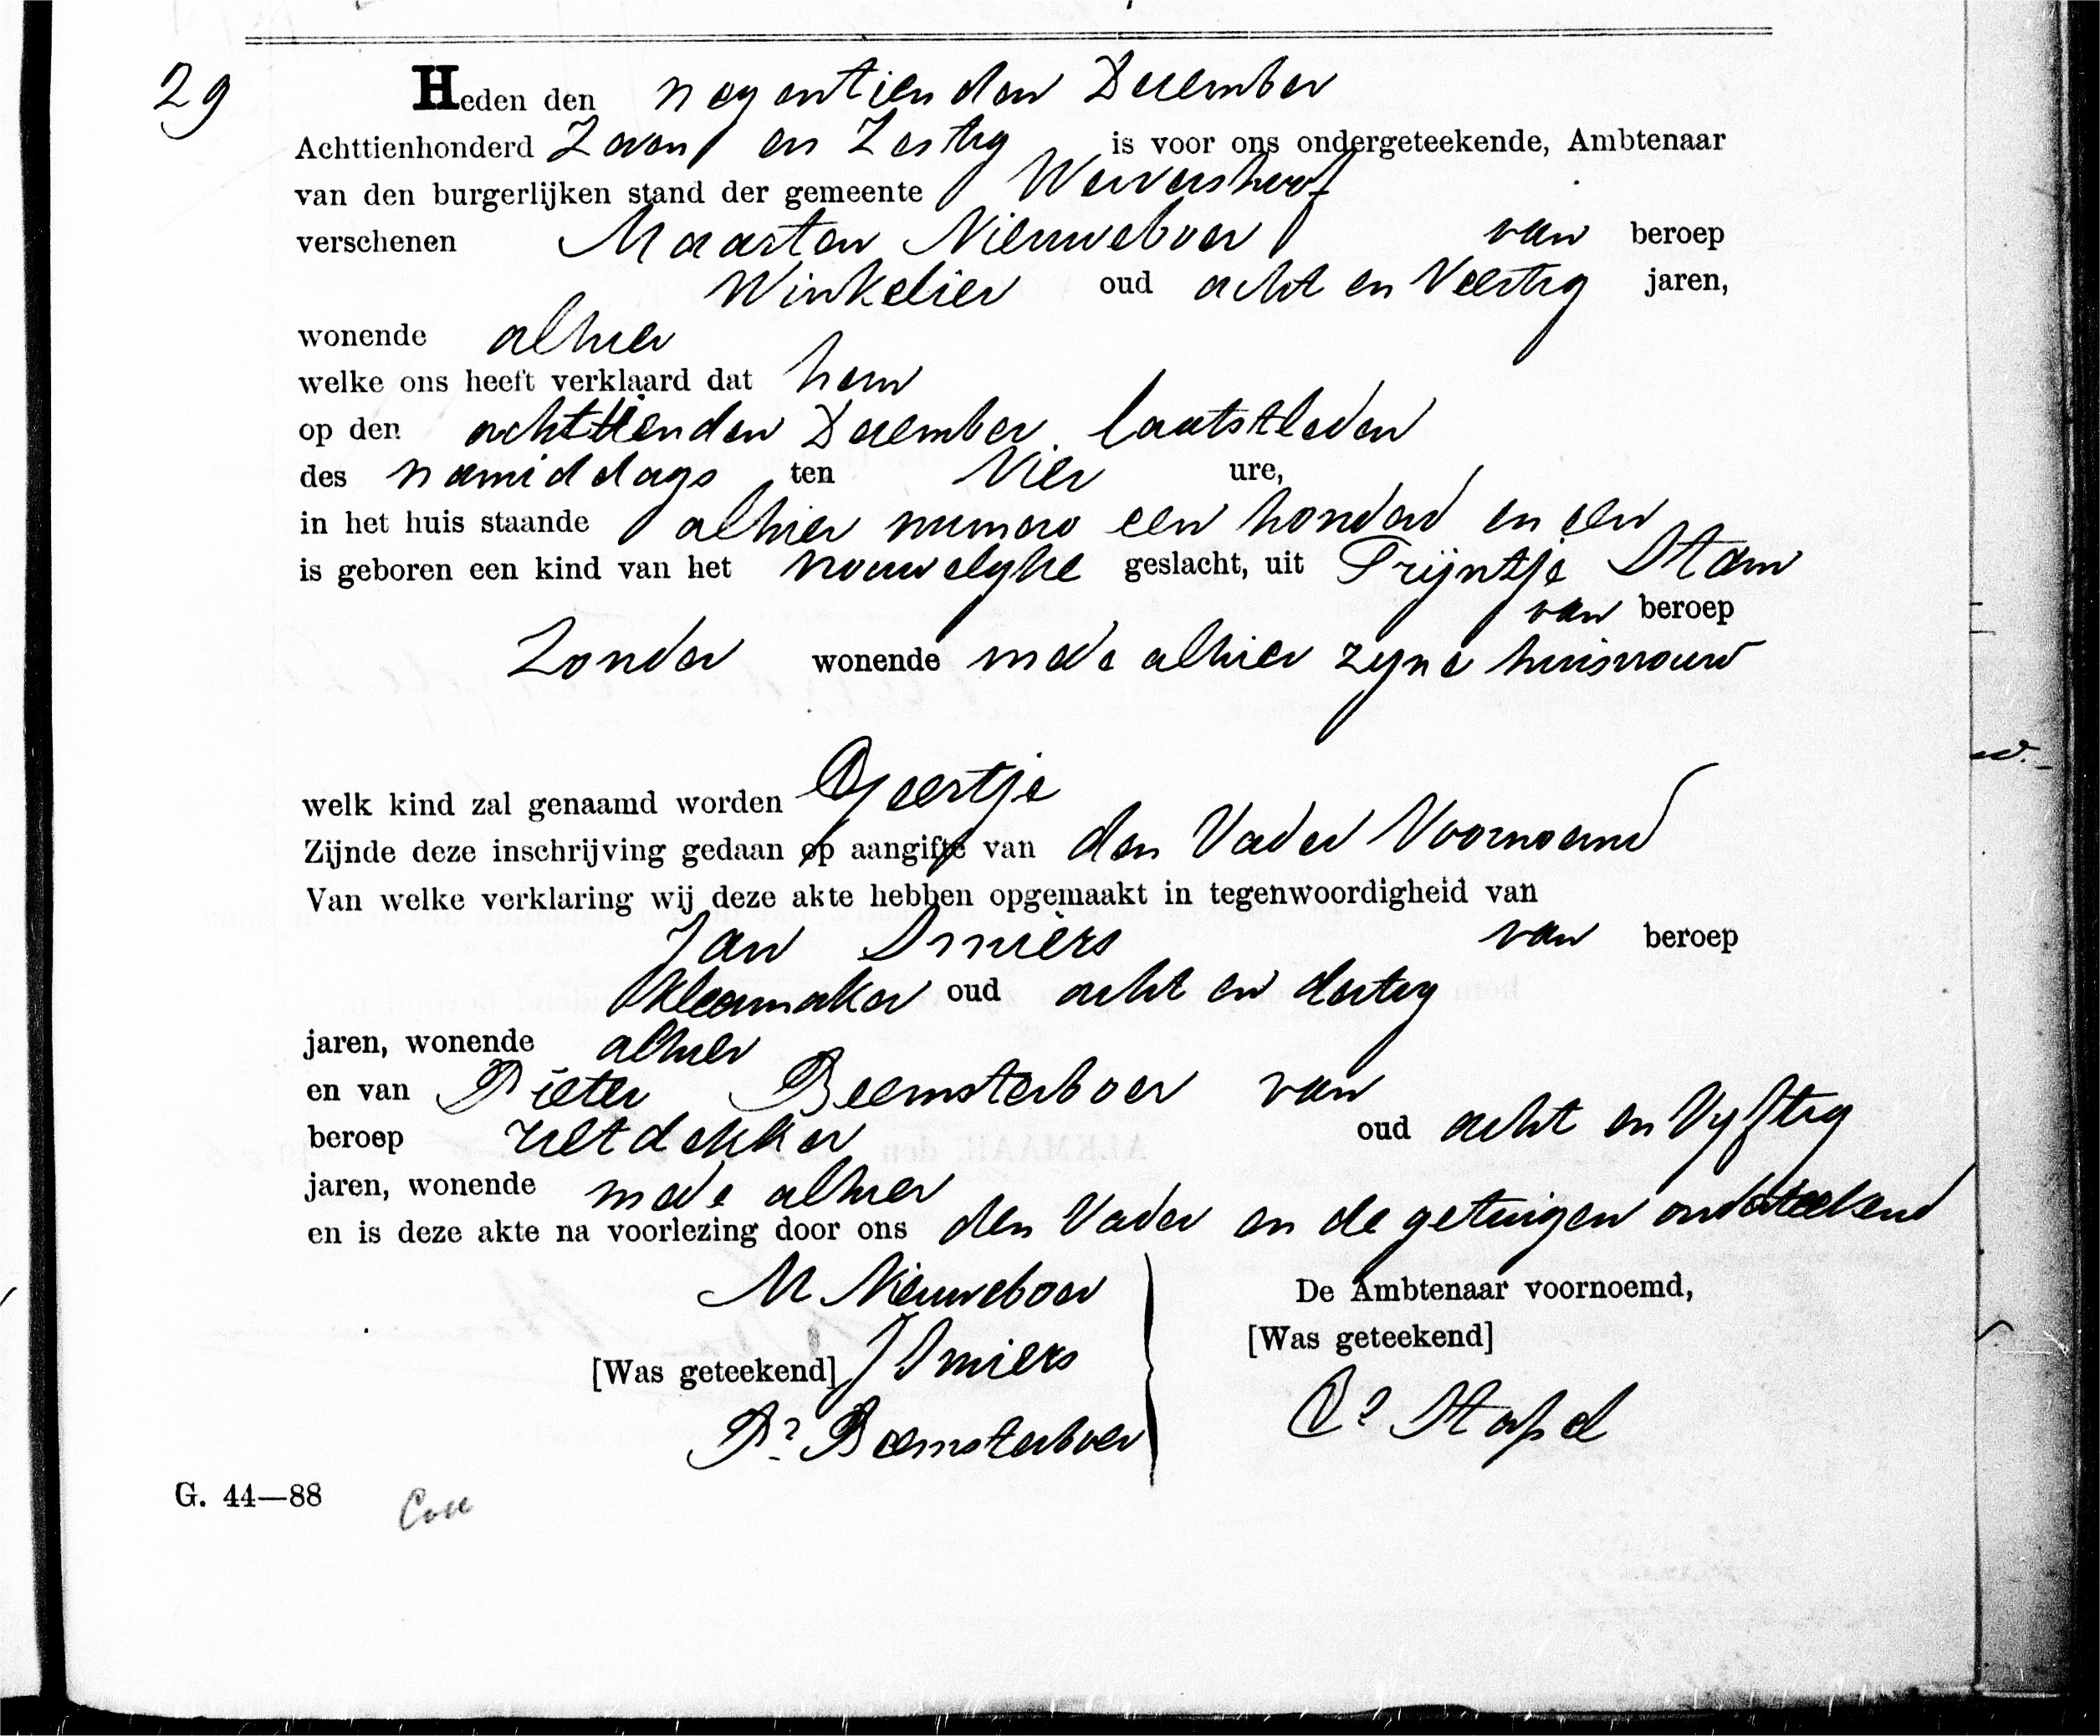 29 Heden den negentienden December
Achttienhonderd Zeven en Zestig is voor ons ondergeteekende, Ambtenaar
van den burgerlijken stand der gemeente Wervershoof
verschenen Maarten Nieuweboer van beroep
Winkelier oud acht en Veertig jaren,
wonende alhier
welke ons heeft verklaard dat hem
op den achttienden December laatstleden
des namiddags ten Vier ure,
in het huis staande alhier numero een honderd en een
is geboren een kind van het vrouwelyke geslacht, uit Trijntje Stam
van beroep
Zonder wonende mede alhier zyne huisvrouw
welk kind zal genaamd worden Geertje
Zijnde deze inschrijving gedaan op aangifte van den Vader Voornoemd
Van welke verklaring wij deze akte hebben opgemaakt in tegenwoordigheid van
Jan Smiers van beroep
kleermaker oud acht en dertig
jaren, wonende alhier
en van Pieter Beemsterboer van
beroep rietdekker oud acht en Vyftig
jaren, wonende mede alhier
en is deze akte na voorlezing door ons den Vader en de getuigen onderteekend
M Nieuweboer
De Ambtenaar voornoemd,
[Was geteekend] J Smiers
[Was geteekend]
Pr Beemsterboer
Cs Stapel
G. 44—88 Coll